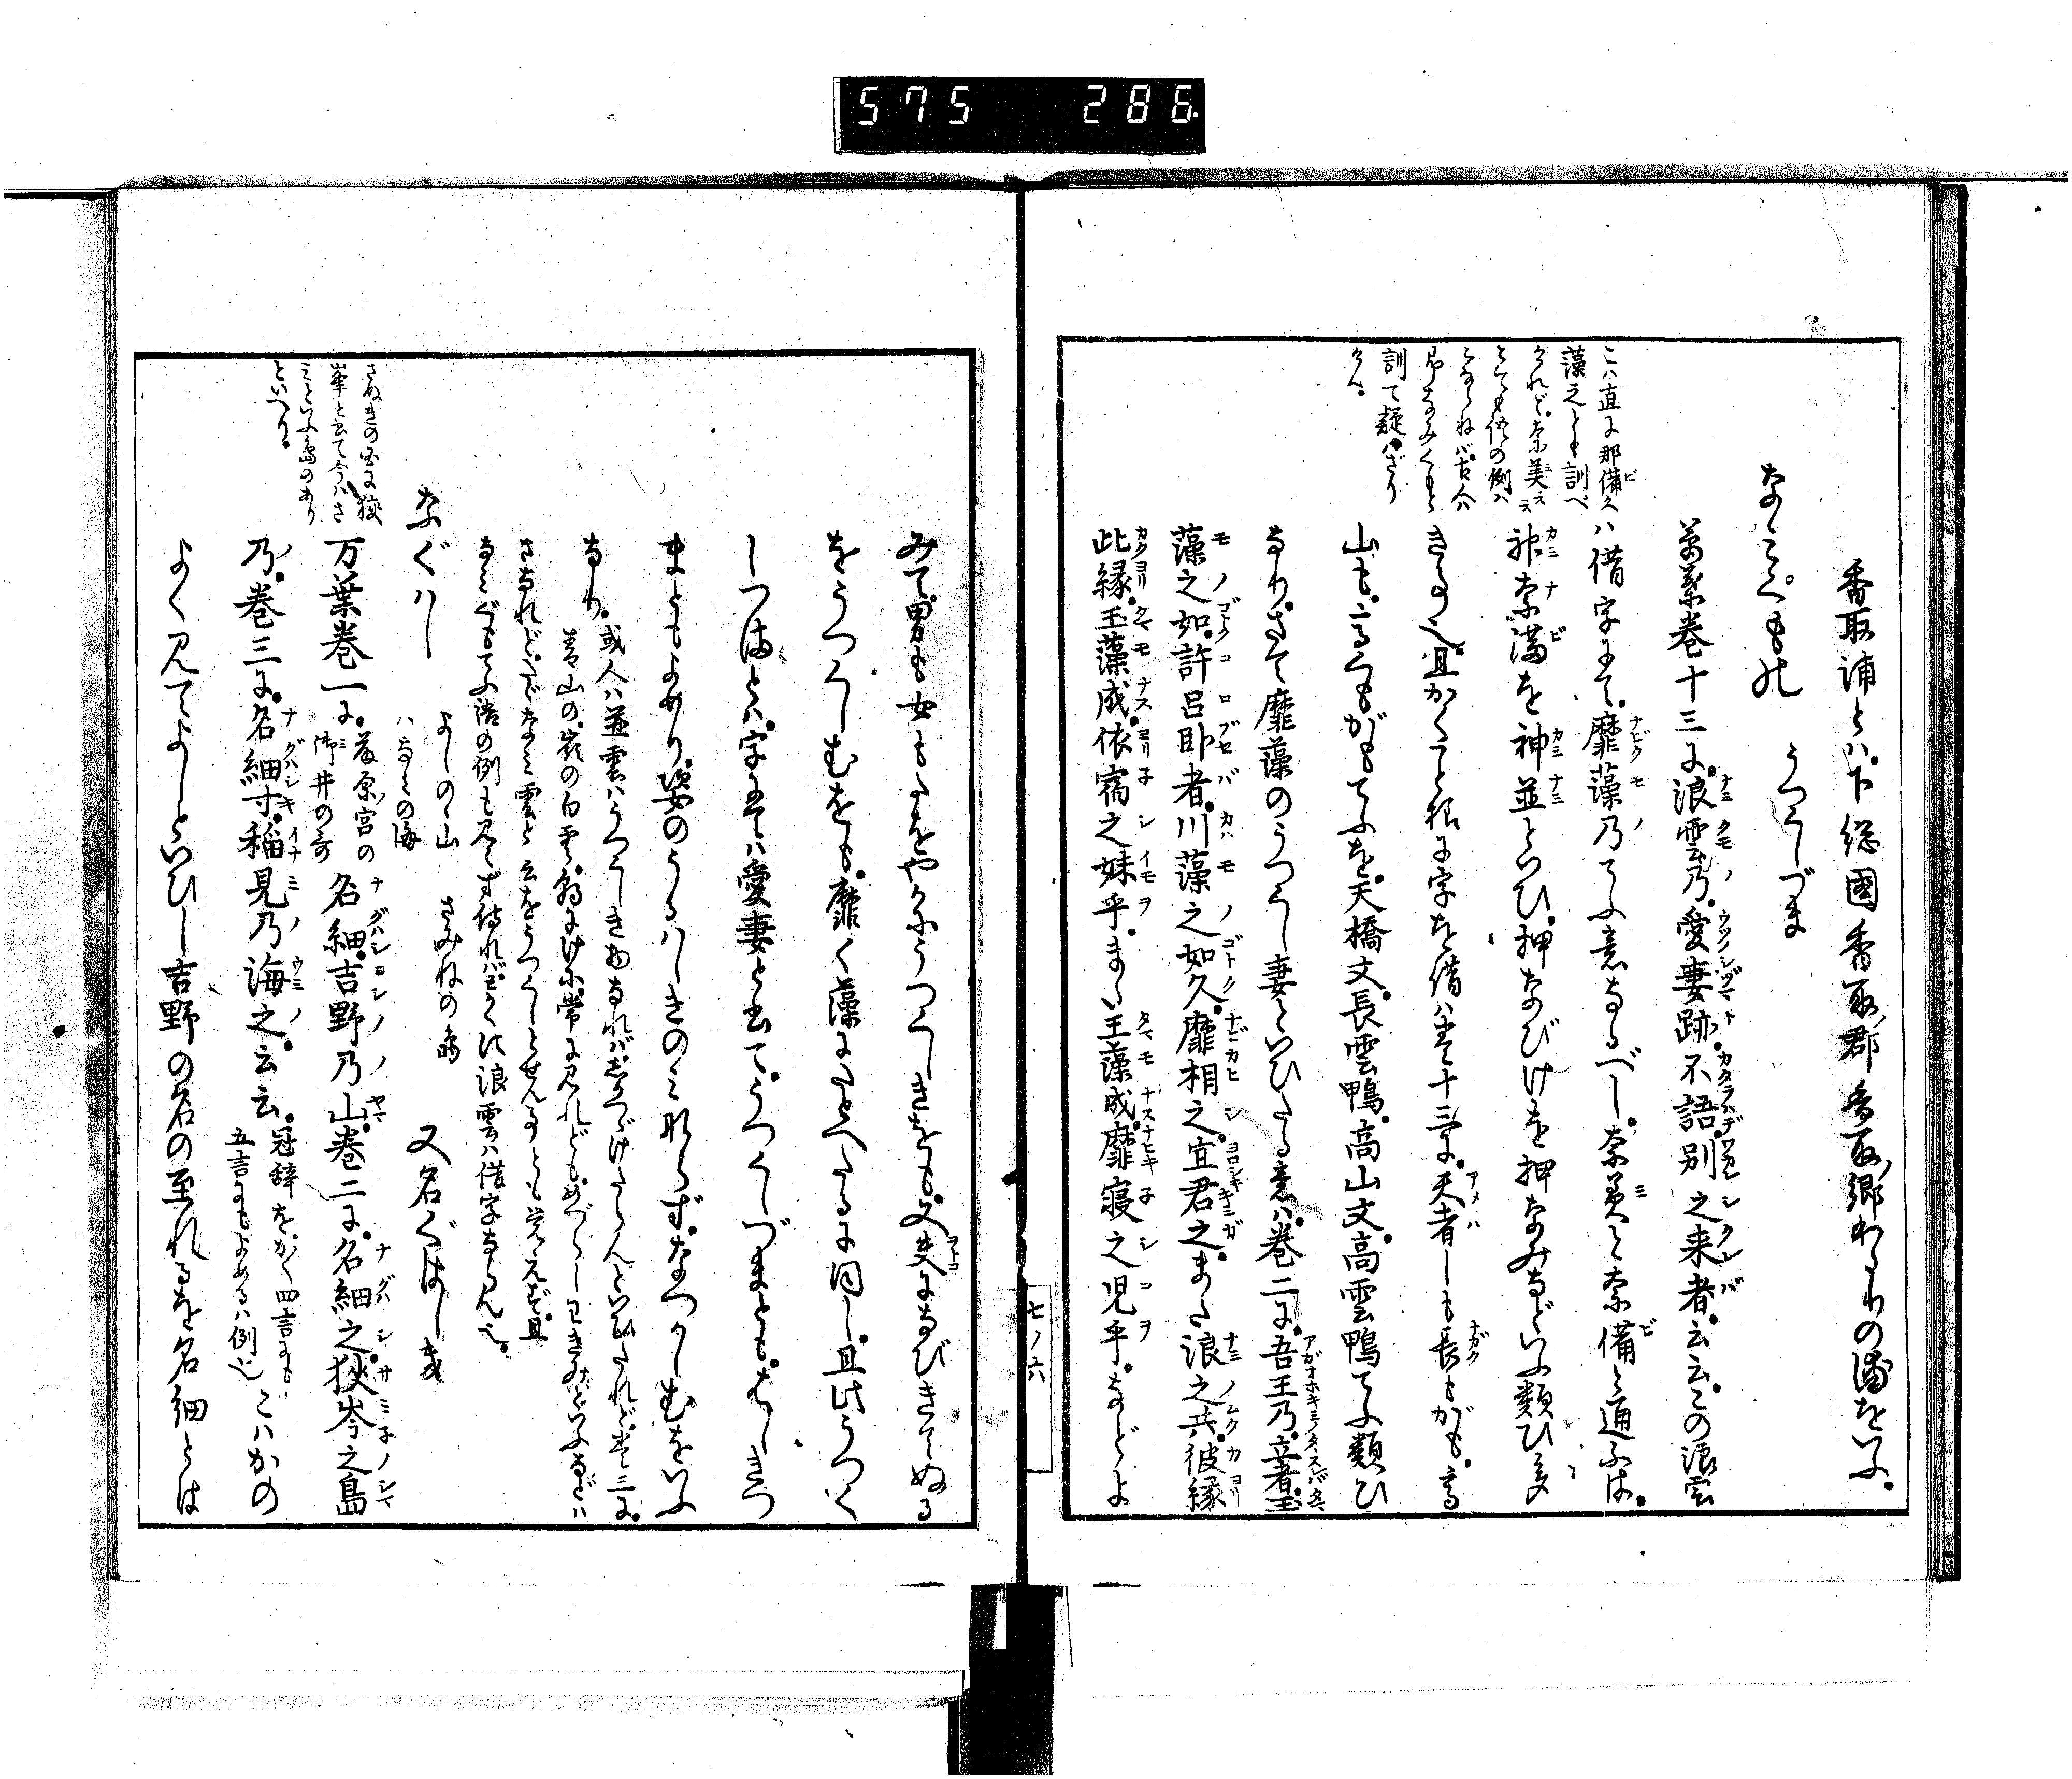 575 286
香取浦とハ下総國香取郡香取郷わたりの浦をいふ。
なみくもの うつくしづま
萬葉巻十三に。浪雲乃。愛妻跡。不語。別之来者。云云。この浪雲
ハ借字にて。靡藻乃てふ意なるべし。奈美と奈備と通ふは。
神奈備を神並といひ。押なびけを押なみなどいふ類ひ多
きる也。且かくて根に字を借ハ巻十三に。天者しも長もがも。高
山も。高くもがもてふを。天橋文。長雲鴨。高山文。高雲鴨てふ類ひ
なり。さて靡藻のうつくし妻といひたる意ハ。巻二に。吾王乃。立者。玉
藻之如。許呂卧者。川藻之如久。靡相之。宜君之。また浪之共。彼縁
此縁。玉藻成。依宿之妹乎。また玉藻成。靡寝之児乎。などよ
こハ直に那備久
藻之とも訓べ
けれど。奈美
訓て疑ハざり
けん。
七ノ六
みて。男も女もたをやかにうつくしきをも。又夫になびきてぬる
をうつくしむをも。靡く藻にたとへたるに同し。且此うつく
しつまとハ。字にてハ愛妻と書て。うつくしづまとも。はしきつ
まともよめり。姿のうるハしきのみならず。なつかしむをいふ
なり。或人ハ並雲ハうつくしき物なれバ。しかつゞけたらんといひたれど。巻三に。
青山の。嶺の白雲。朝にけに。常に見れども。めづらしわきみといふなどハ
さもあれど。たゞなみ雲と云をうつくしとせんるとも覚えず。且
なミぐもてふ語の例も見えず侍れバ。とかくに浪雲ハ借字ならん也。
なぐハし よしのゝ山 さみねの島 又名ぐはしき
ハなみの海
万葉巻一に。藤原宮の御井の歌 名細。吉野乃山。巻二に。名細之。狭岑之島
乃。巻三に。名細寸。稲見乃海之。云云。冠辞をかく四言にも
五言にもよめるハ例也 こハかの
よく見てよしといひし吉野の名の至れるを名細とは
さぬきの国に狭
峯と書て今ハさ
ミといふ島のあり
といへり。